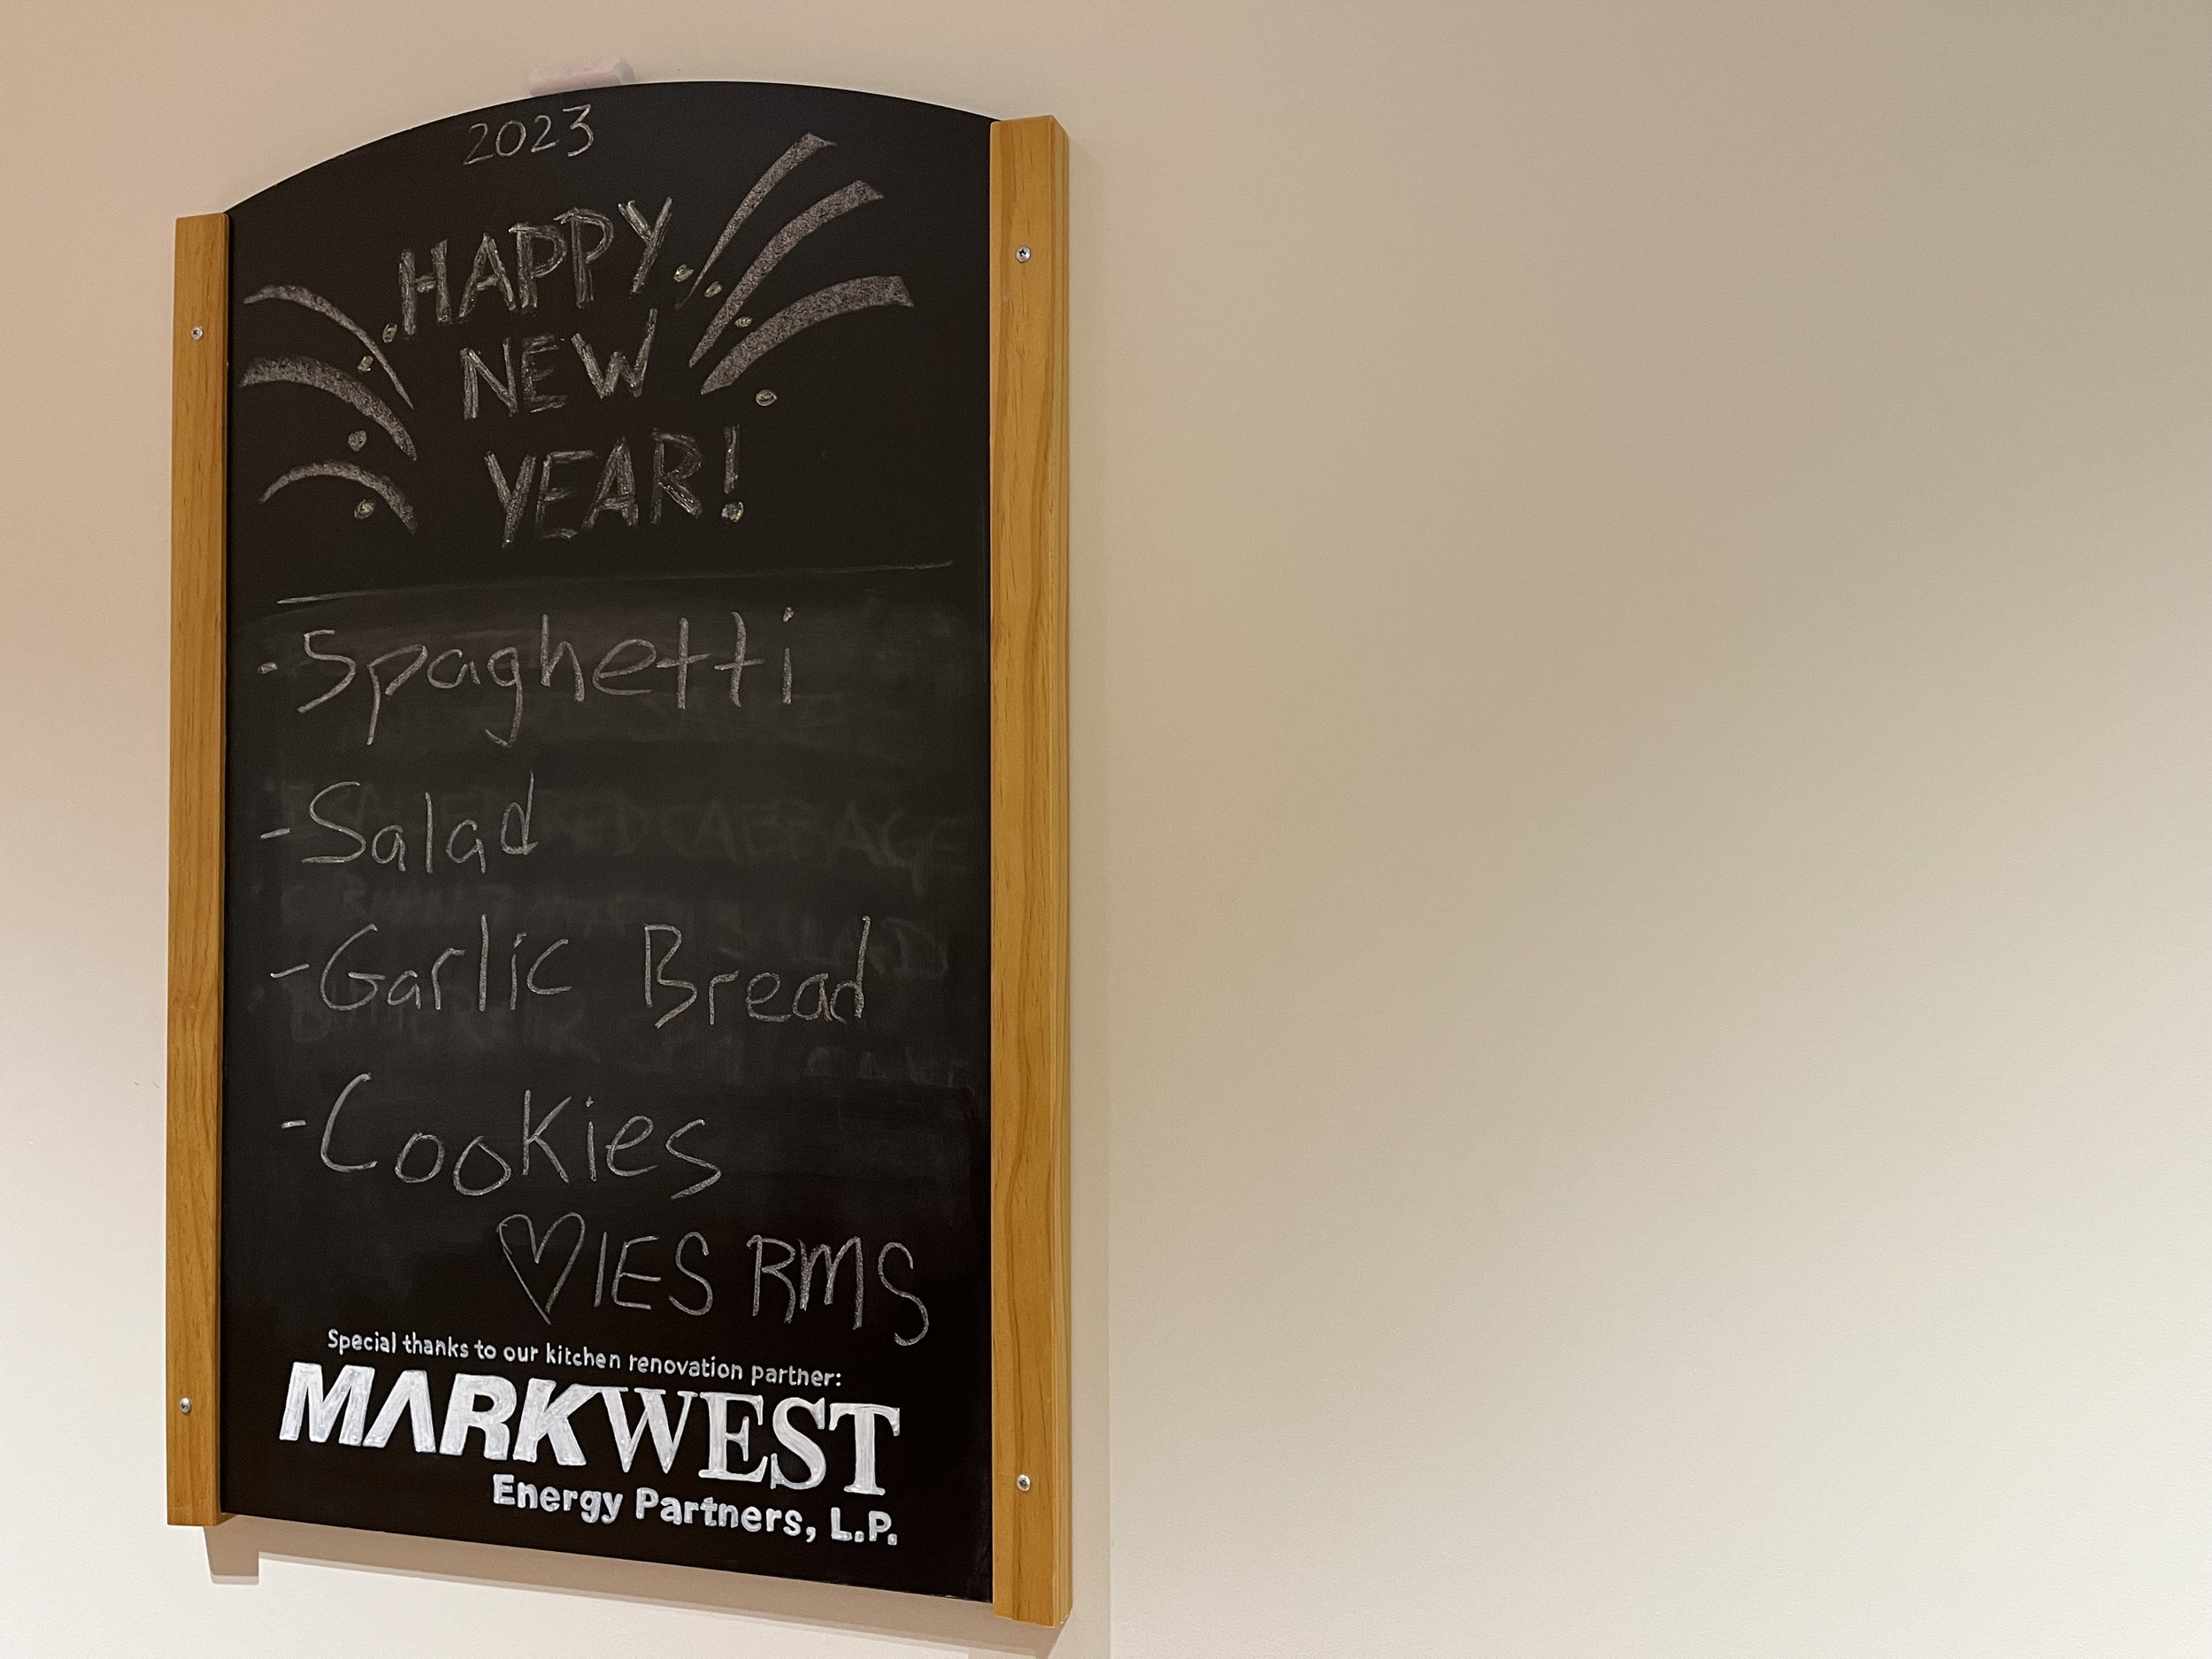 2023
HAPPY
NEW
YEAR!
-Spaghetti
-Salad
-Garlic Bread
-Cookies
♡IES RMS
Special thanks to our kitchen renovation partner:
MARKWEST
Energy Partners, L.P.